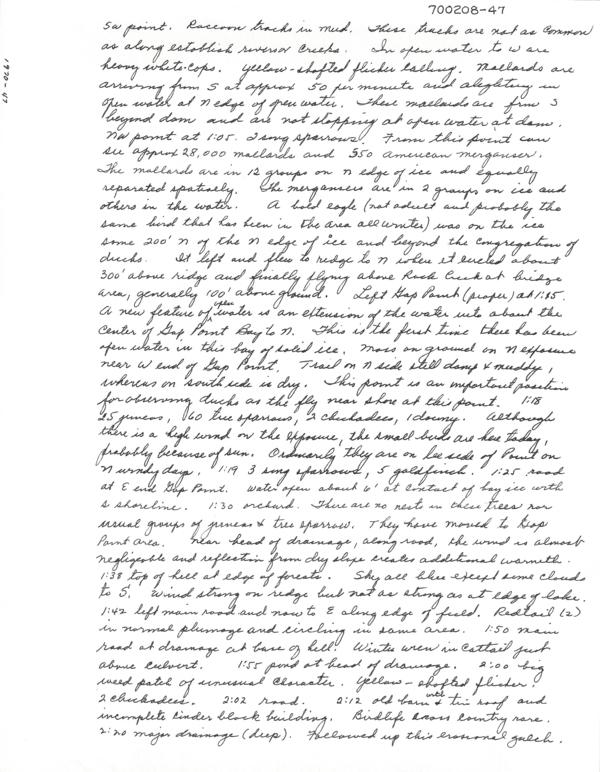 700208-47
1970-47
Sw point. Raccoon tracks in mud. These tracks are not as common
as along establish rivers or creeks. In open water to W are
heavy white-caps. Yellow-shafted flicker calling. Mallards are
arriving from S at approx 50 per minute and alighting in
open water at N edge of open water. These mallards are from S
beyond dam and are not stopping at open water at dam.
NW point at 1:05. 2 song sparrows. From this point can
see approx 28,000 mallards and 350 american merganser.
The mallards are in 12 groups on N edge of ice and equally
separated spatially. The mergansers are in 2 groups on ice and
others in the water. A bald eagle (not adult and probably the
same bird that has been in the area all winter) was on the ice
some 200' N of the N edge of ice and beyond the congregation of
ducks. It left and flew to ridge to N where it circled about
300' above ridge and finally flying above Rock Creek at bridge
area, generally 100' above ground. Left Gap Point (proper) at 1:15.
A new feature of open water is an extension of the water into about the
center of Gap Point Bay to N. This is the first time there has been
open water in this bay of solid ice. Moss on ground on N exposure
near W end of Gap Point. Trail on N side still damp & muddy,
whereas on south side is dry. This point is an important position
for observing ducks as the fly near shore at this point. 1:18
25 juncos, 60 tree sparrows, 2 chickadees, 1 downy. Although
there is a high wind on the exposure, the small birds are here today,
probably because of sun. Ordinarily they are on lee side of Point on
N windy days. 1:19 3 song sparrows, 5 goldfinch. 1:25 road
at E end Gap Point. Water open about 6' at contact of bay ice with
S shoreline. 1:30 orchard. There are no nests in these trees nor
usual groups of juncos & tree sparrow. They have moved to Gap
Point area. Near head of drainage, along road, the wind is almost
negligeable and reflection from dry slope creates additional warmth.
1:38 top of hill at edge of forests. Sky all blue except some clouds
to S. Wind strong on ridge but not as strong as at edge of lake.
1:42 left main road and now to E along edge of field. Redtail (2)
in normal plumage and circling in same area. 1:50 main
road at drainage at base of hell. Winter wren in cattail just
above culvert. 1:55 pond at head of drainage. 2:00 big
weed patch of unusual character. Yellow-shafted flicker.
2 chickadees. 2:02 road. 2:12 old barn with tin roof and
incomplete cinder block building. Birdlife cross country rare.
2:20 major drainage (deep). Followed up this erosional gulch.